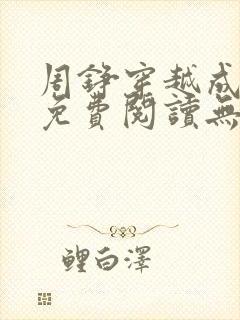 周錚穿越成
免費閱讀無
鯉白澤